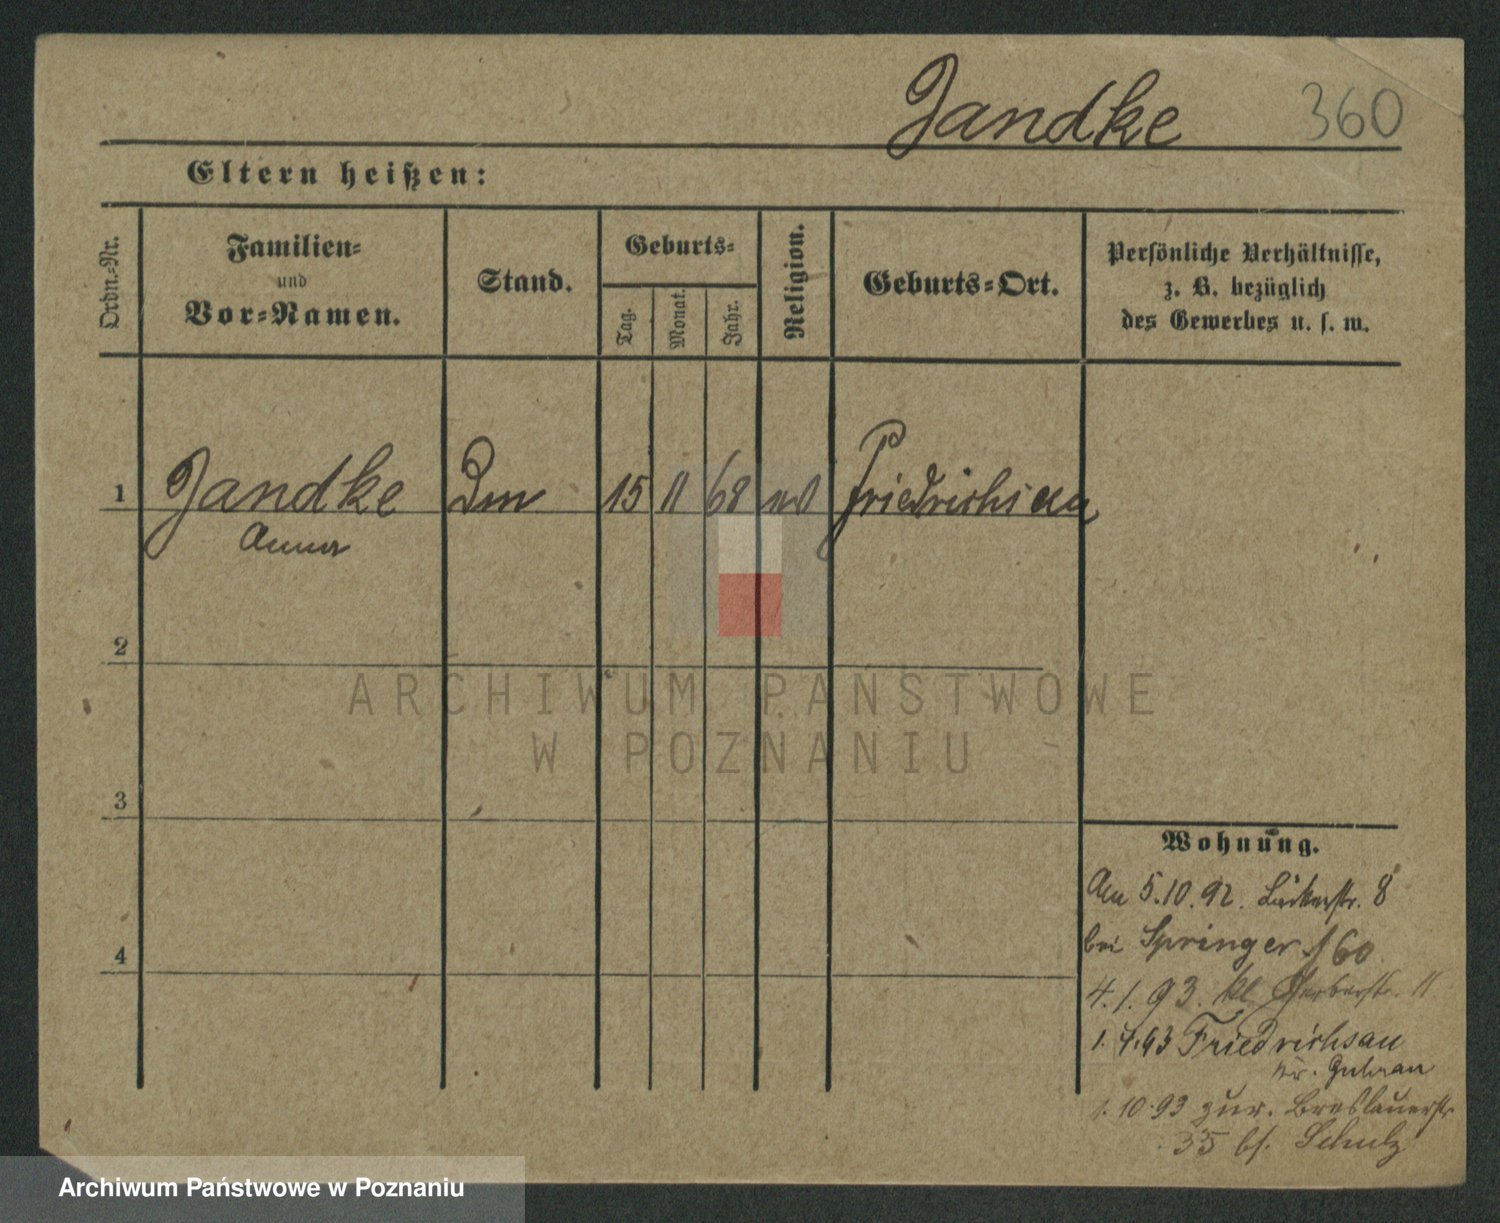 Jandke 360
Eltern heißen:
Ordn.-Nr.
Familien-
und
Vor-Namen.
Stand.
Geburts-
Tag.
Monat.
Jahr.
Religion.
Geburts-Ort.
Persönliche Verhältnisse,
z. B. bezüglich
des Gewerbes u. s. w.
1 Jandke 15 11 68 Friedrichsau
Anna
2
3
4
ARCHIWUM PAŃSTWOWE
W POZNANIU
Wohnung.
Am 5.10.92. 8
bei Springer 160
4.1.93. kl. Gerberstr. 11
1.7.93 Friedrichsau
1.10.93 zur. Breslauerstr.
35 bs. Schulz
Archiwum Państwowe w Poznaniu